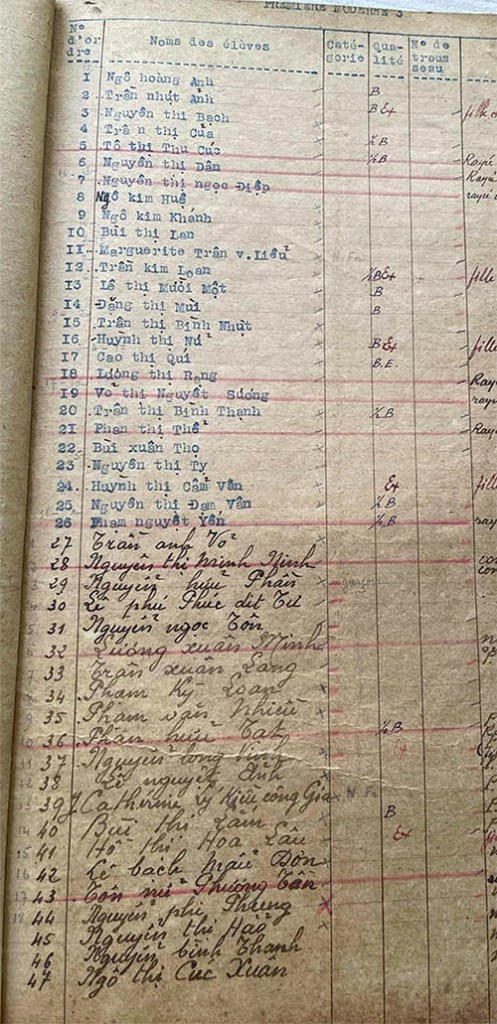 PREMIERE MODERNE 3
N° d'or dre Noms des élèves Caté- gorie Qua- lité N° de trous seau
1 Ngô hoàng Anh
2 Trần nhút Ảnh B
3 Nguyễn thị Bạch B Ex fille
4 Trần thị Của
5 Tô thị Thu Cúc ½ B
6 Nguyễn thị Dần ½ B Rayé
7 Nguyễn thị ngọc Điệp Rayé
8 Ngô kim Huê rayé
9 Ngô kim Khánh
10 Bùi thị Lan
11 Marguerite Trần v. Liễu
12 Trần kim Loan ½B Ex fille
13 Lê thị Mười Một B
14 Đặng thị Mùi B
15 Trần thị Bình Nhựt
16 Huỳnh thị Nử B Ex fille
17 Cao thị Quí B.E.
18 Lương thị Rạng Rayé
19 Võ thị Nguyệt Sương rayé
20 Trần thị Bình Thạnh ½ B
21 Phan thị Thể Rayé
22 Bùi xuân Thọ
23 Nguyễn thị Ty
24 Huỳnh thị Cẩm Vân Ex fille
25 Nguyễn thị Đạm Vân ½ B
26 Phạm nguyệt Yến ½ B
27 Trần anh Võ
28 Nguyễn thị Minh Ninh
29 Nguyễn hữu Phần
30 Lê phú Phúc dit Tư
31 Nguyễn ngọc Tôn
32 Lương xuân Minh
33 Trần xuân Lang
34 Phạm Kỳ Loan
35 Phạm văn Nhiều
36 Phan hữu Tạt ½ B
37 Nguyễn long Vinh
38 Lê nguyệt Ánh
39 Catherine Lý Kiều công Gia N Fr
40 Bùi thị Lắm B
41 Hồ thị Hoa Lâu Ex
42 Lê bạch Mẫu Đơn
43 Tôn nữ Phương Tần
44 Nguyễn phi Phụng
45 Nguyễn thị Hảo
46 Nguyễn bình Thanh
47 Ngô thị Cúc Xuân